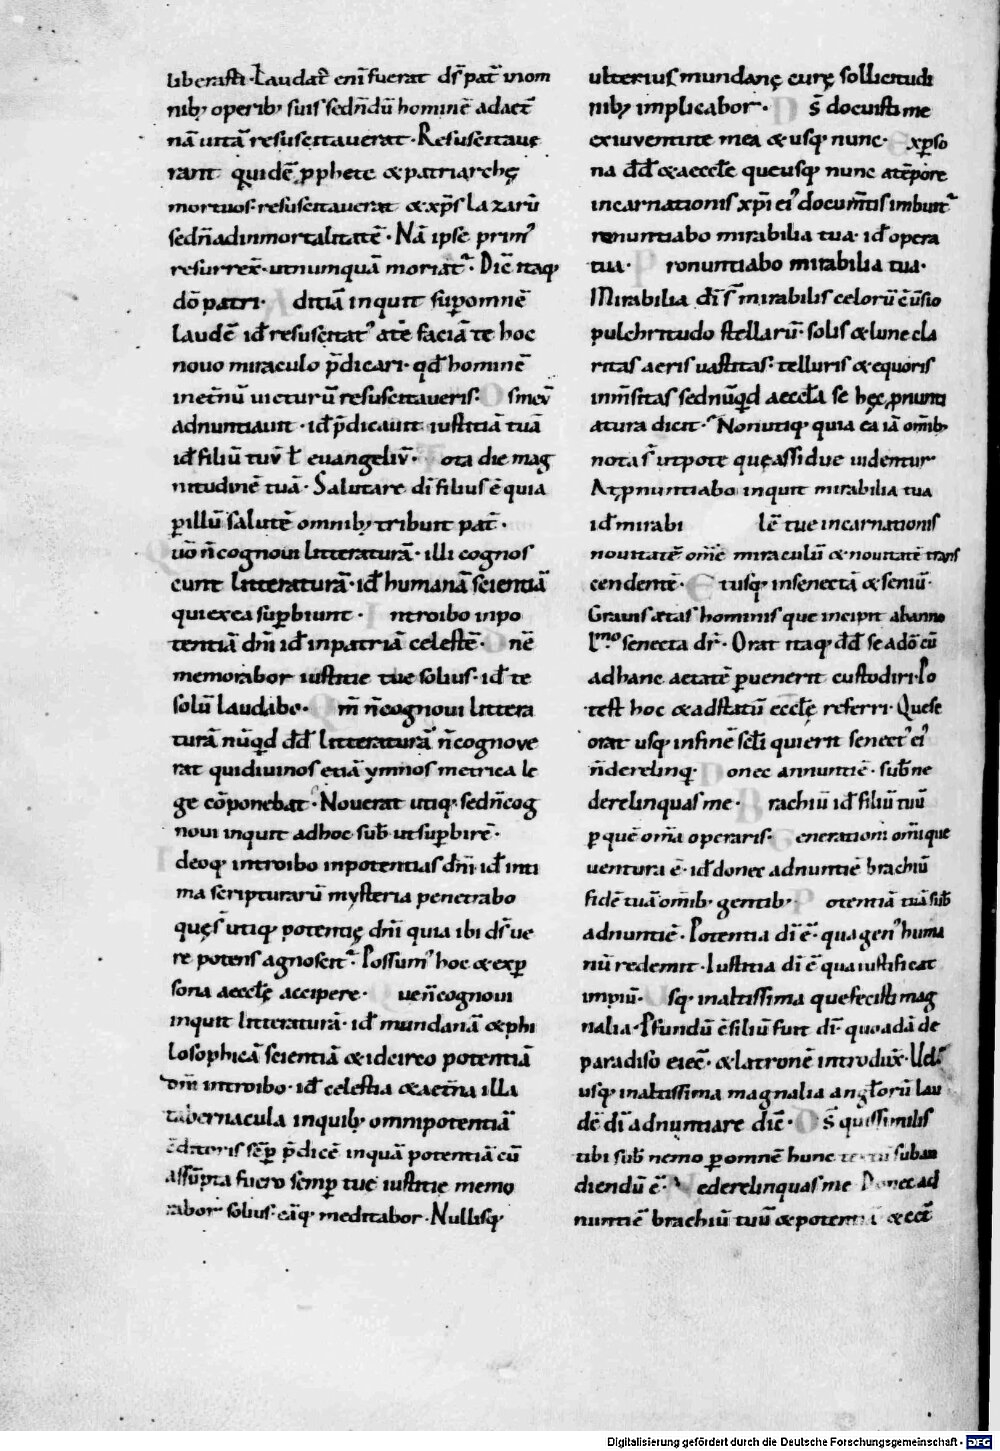 liberasti · Laudat᷑ eni᷑ fuerat ds̄ pat᷑ in om
nib; operib; suis sed n̄dū hominē ad aet᷑
nā uitā resuscitauerat · Resuscitaue
rant quidē ꝓphete & patriarchę
mortuos · resuscitauerat & xp̄s lazarū
sed n̄ ad inmortalitatē · Nā ipse prim᷒
resurrex̄ · ut numquā moriat᷑ · Dic̄ itaq;
dō patri · ditiā inquit sup̄ omnē
laudē id ē resuscitat᷒ a te faciā te hoc
nouo miraculo p̄dicari · qd̄ hominē
in et᷑nū uicturū resuscitaueris · O s meū
adnuntiauit · id ē p̄dicauit iustitiā tuā
id ē filiū tuū ł euangeliū · Tota die mag
nitudinē tuā · Salutare di᷑ filius ē quia
p̄ illū salutē omnib; tribuit pat᷑ ·
uō n̄ cognoui litteraturā · illi cognos
cunt litteraturā · id ē humanā scientiā
qui ex ea sup̄biunt · Introibo in po
tentiā dn̄i id ē in patriā celestē · nē
memorabor iustitie tue solius · id ē te
solū laudabo · Qm̄ n̄ cognoui littera
turā nūqd̄ dd̄ litteraturā n̄ cognoue
rat qui diuinos etiā ymnos metrica le
ge cōponebat · Nouerat utiq; sed n̄ cog
noui inquit adhoc sub᷑ ut sup̄birē ·
deoq; introibo in potentias dn̄i id ē inti
ma scripturarū mysteria penetrabo
quęs᷑ utiq; potentię dn̄i quia ibi ds̄ ue
re potens agnoscit᷑ · Possum᷒ hoc & ex p̄
sona aeccłę accipere · ue n̄ cognoui
inquit litteraturā · id ē mundanā & phi
losophicā scientiā & idcirco potentiā
dn̄i introibo · id ē celestia & aet᷑na illa
tabernacula in quib; omnipotentiā
ēditoris sēp̄ p̄dicē in quā potentiā cū
assūpta fuero semp̄ tue iustitie memo
rabor solius · eāq; meditabor · Nullisq;
ulterius mundanę curę sollicitudi
nib; implicabor · Ds̄ docuisti me
ex iuuentute mea & usq; nunc · Ex p̄so
na dd̄ & aeccłe que usq; nunc a tēpore
incarnationis xp̄i ei᷒ documtis imbuit᷑
renuntiabo mirabilia tua · id ē opera
tua · Pronuntiabo mirabilia tua ·
Mirabilia di᷑ s᷑ mirabilis celorū cūsio
pulchritudo stellarū solis & lune cla
ritas aeris uastitas · telluris & equoris
inm̄sitas sed nūqd̄ aeccła se hęc ꝓnunti
atura dicit · Non utiq; quia ea iā omib;
nota s᷑ utpote que assidue uidentur
At ꝓnuntiabo inquit mirabilia tua
id ē mirabilē tue incarnationis
nouitatē om̄e miraculū & nouitatē trans
cendentē · Et usq; in senectā & seniū ·
Grauis aetas hominis que incipit ab anno
l.mo senecta dr̄ · Orat itaq; dd̄ se a dō cū
ad hanc aetatē p̄uenerit custodiri · Po
test hoc & ad statū eccłę referri · Que se
orat usq; in finē scłi qui erit senect᷒ ei᷒
n̄ derelinq; · Donec annuntiē · sub᷑ ne
derelinquas me · Brachiū id ē filiū tuū
p̄ quē om̄ia operaris · Generationi om̄i que
uentura ē · id ē donec adnuntiē brachiū
fidē tuā om̄ib; gentib; · Potentiā tuā sub᷑
adnuntiē · Potentia di᷑ ē · qua gen᷒ huma
nū redemit · Iustitia di᷑ ē qua iustificat
impiū · Usq; in altissima que fecisti mag
nalia · Pfundū ē filiū fuit di᷑ · quo adā de
paradiso eiec̄ · & latronē introdux̄ · Uel
usq; in altissima magnalia angłorū lau
dē di᷑ adnuntiare dic̄ · Ds̄ quis similis
tibi sub᷑ nemo p̄ omnē hunc suban
diendū ē · Ne derelinquas me · Donec ad
nuntiē brachiū tuū & potentiā & cet᷑
Digitalisierung gefördert durch die Deutsche Forschungsgemeinschaft · DFG